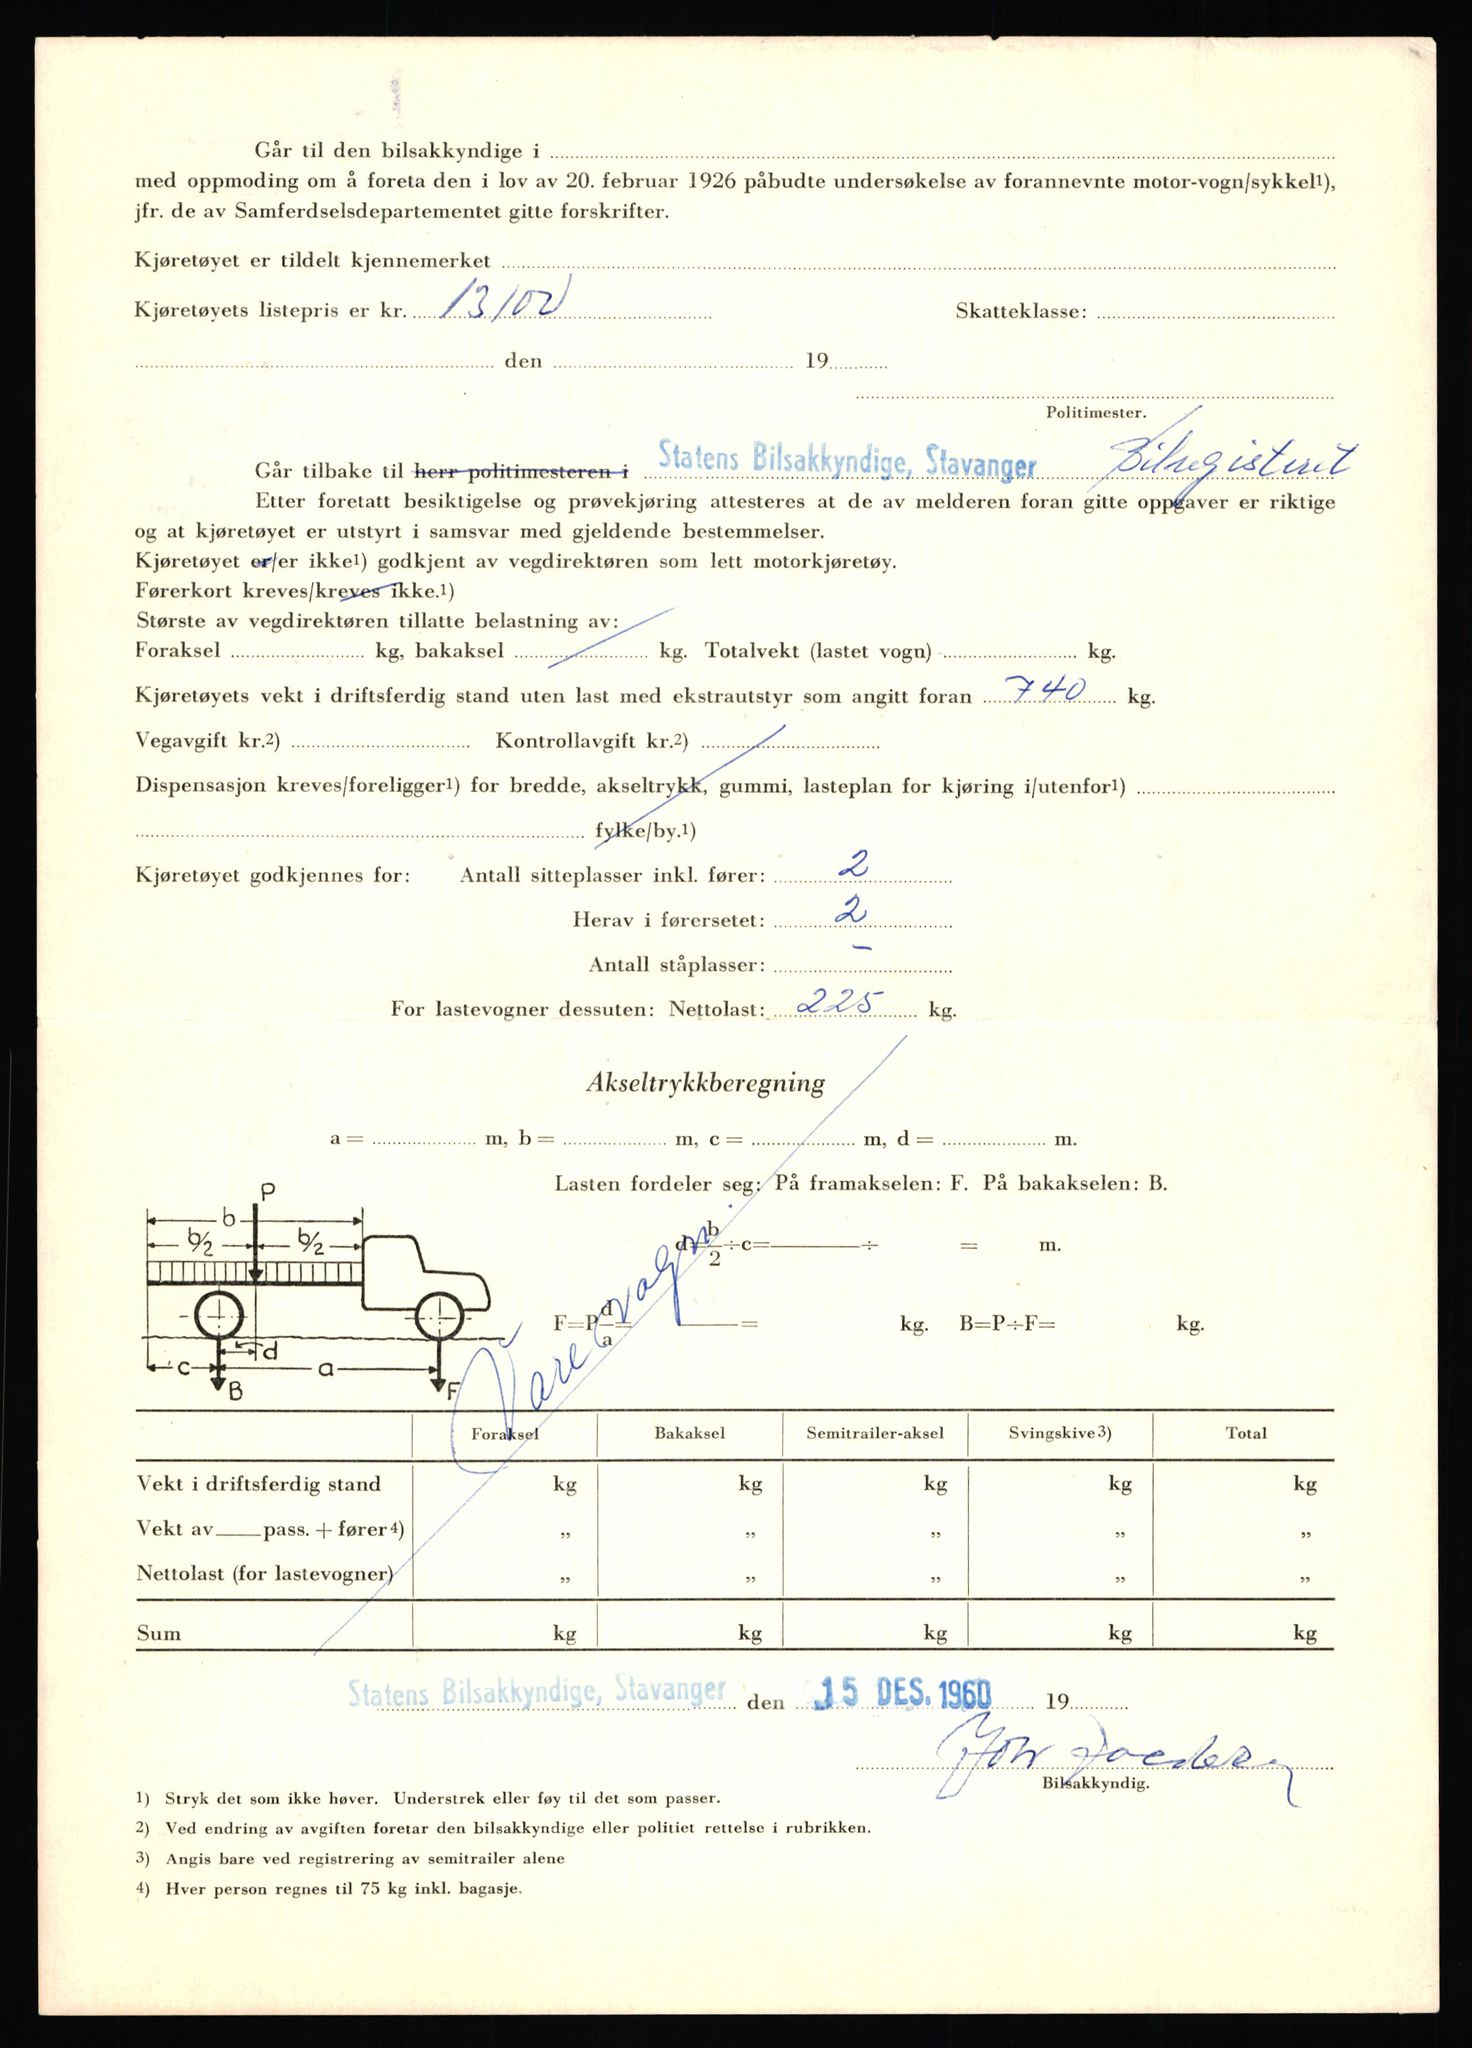 Går til den bilsakkyndige i
med oppmoding om å foreta den i lov av 20. februar 1926 påbudte undersøkelse av forannevnte motor-vogn/sykkel1),
jfr. de av Samferdselsdepartementet gitte forskrifter.
Kjøretøyet er tildelt kjennemerket
Kjøretøyets listepris er kr. 13100 Skatteklasse:
den 19
Politimester.
Går tilbake til herr politimesteren i Statens Bilsakkyndige, Stavanger Bilregisteret
Etter foretatt besiktigelse og prøvekjøring attesteres at de av melderen foran gitte oppgaver er riktige
og at kjøretøyet er utstyrt i samsvar med gjeldende bestemmelser.
Kjøretøyet er/er ikke1) godkjent av vegdirektøren som lett motorkjøretøy.
Førerkort kreves/kreves ikke.1)
Største av vegdirektøren tillatte belastning av:
Foraksel kg, bakaksel kg. Totalvekt (lastet vogn) kg.
Kjøretøyets vekt i driftsferdig stand uten last med ekstrautstyr som angitt foran 740 kg.
Vegavgift kr.2) Kontrollavgift kr.2)
Dispensasjon kreves/foreligger1) for bredde, akseltrykk, gummi, lasteplan for kjøring i/utenfor1)
fylke/by.1)
Kjøretøyet godkjennes for: Antall sitteplasser inkl. fører: 2
Herav i førersetet: 2
Antall ståplasser: –
For lastevogner dessuten: Nettolast: 225 kg.
Akseltrykkberegning
a = m, b = m, c = m, d = m.
Lasten fordeler seg: På framakselen: F. På bakakselen: B.
P
b
b/2 b/2
d=b/2÷c= ÷ = m.
F=P d/a= = kg. B=P÷F= kg.
d
c a
B F
Varevogn.
Foraksel Bakaksel Semitrailer-aksel Svingskive3) Total
Vekt i driftsferdig stand kg kg kg kg kg
Vekt av pass. + fører4) „ „ „ „ „
Nettolast (for lastevogner) „ „ „ „ „
Sum kg kg kg kg kg
Statens Bilsakkyndige, Stavanger den 15 DES. 1960 19
Bilsakkyndig.
1) Stryk det som ikke høver. Understrek eller føy til det som passer.
2) Ved endring av avgiften foretar den bilsakkyndige eller politiet rettelse i rubrikken.
3) Angis bare ved registrering av semitrailer alene
4) Hver person regnes til 75 kg inkl. bagasje.